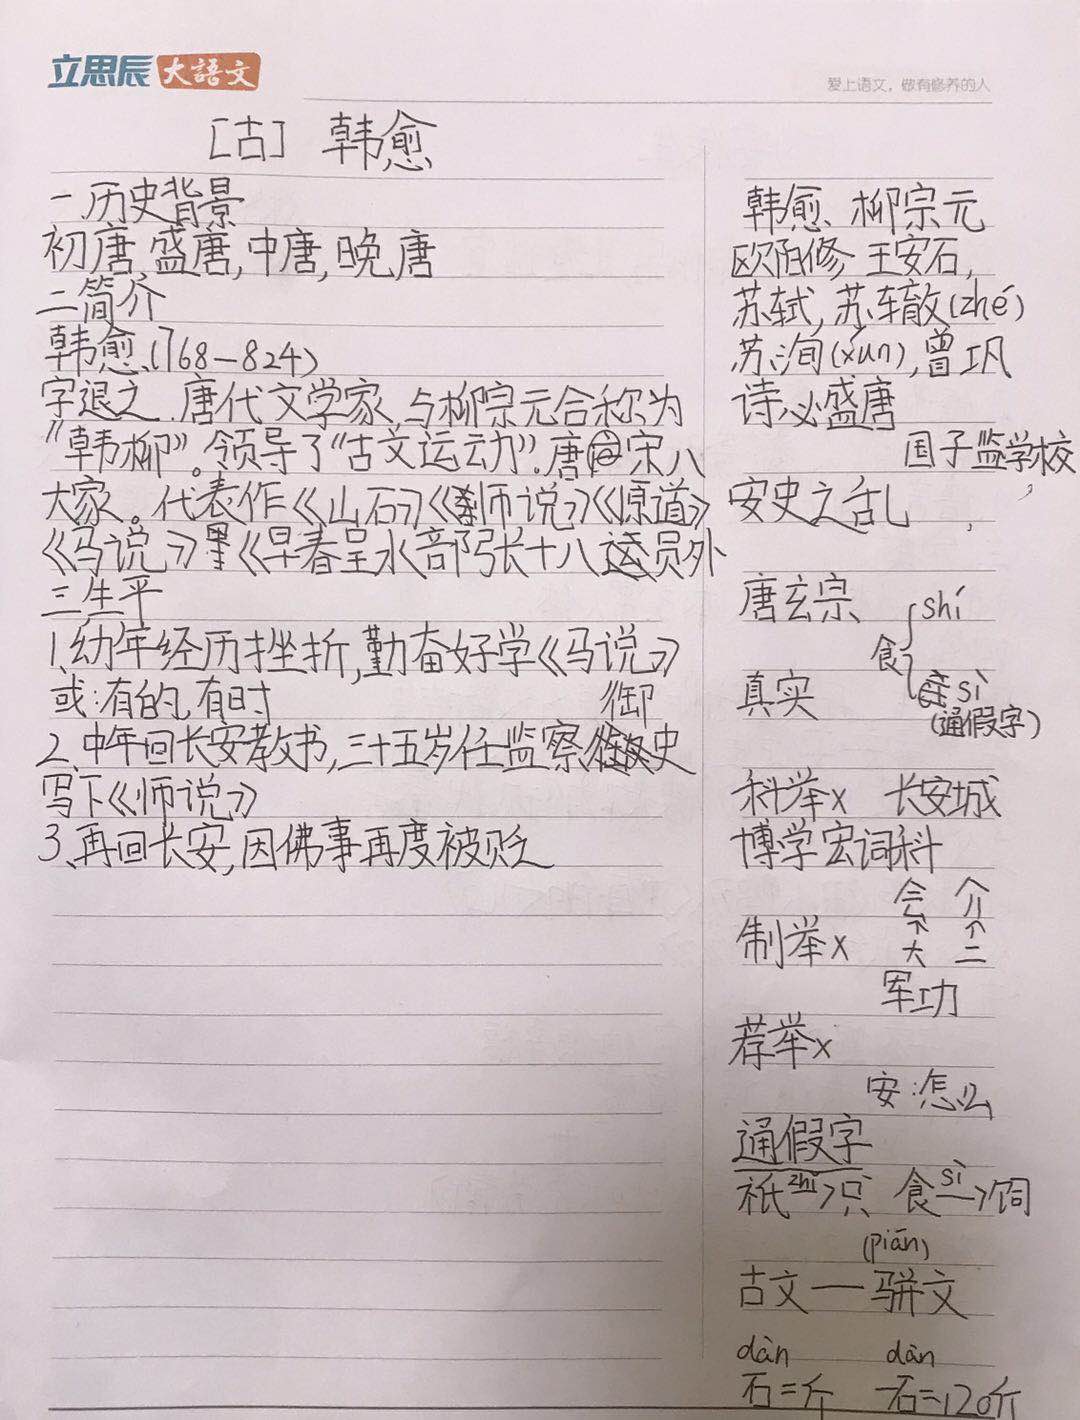 立思辰大語文
爱上语文，做有修养的人
[古] 韩愈
一.历史背景
初唐,盛唐,中唐,晚唐
二简介
韩愈.(768—824)
字退之.唐代文学家、与柳宗元合称为
“韩柳”。领导了“古文运动”.唐宋八
大家。代表作《山石》《师说》《原道》
《马说》《早春呈水部张十八员外
三.生平
1.幼年经历挫折,勤奋好学《马说》
或:有的,有时
御
2.中年回长安教书,三十五岁任监察史
写下《师说》
3、再回长安,因佛事再度被贬
韩愈、柳宗元
欧阳修 王安石,
苏轼,苏辙(zhé)
苏洵(xún),曾巩
诗必盛唐
国子监学校
安史之乱
唐玄宗
shí
食
真实
sì
(通假字)
科举x 长安城
博学宏词科
会 介
↑ ↑
制举x 大 二
军功
荐举x
安:怎么
通假字
祇zhǐ→只 食sì→饲
(pián)
古文—骈文
dàn dàn
石=斤 一石=120斤